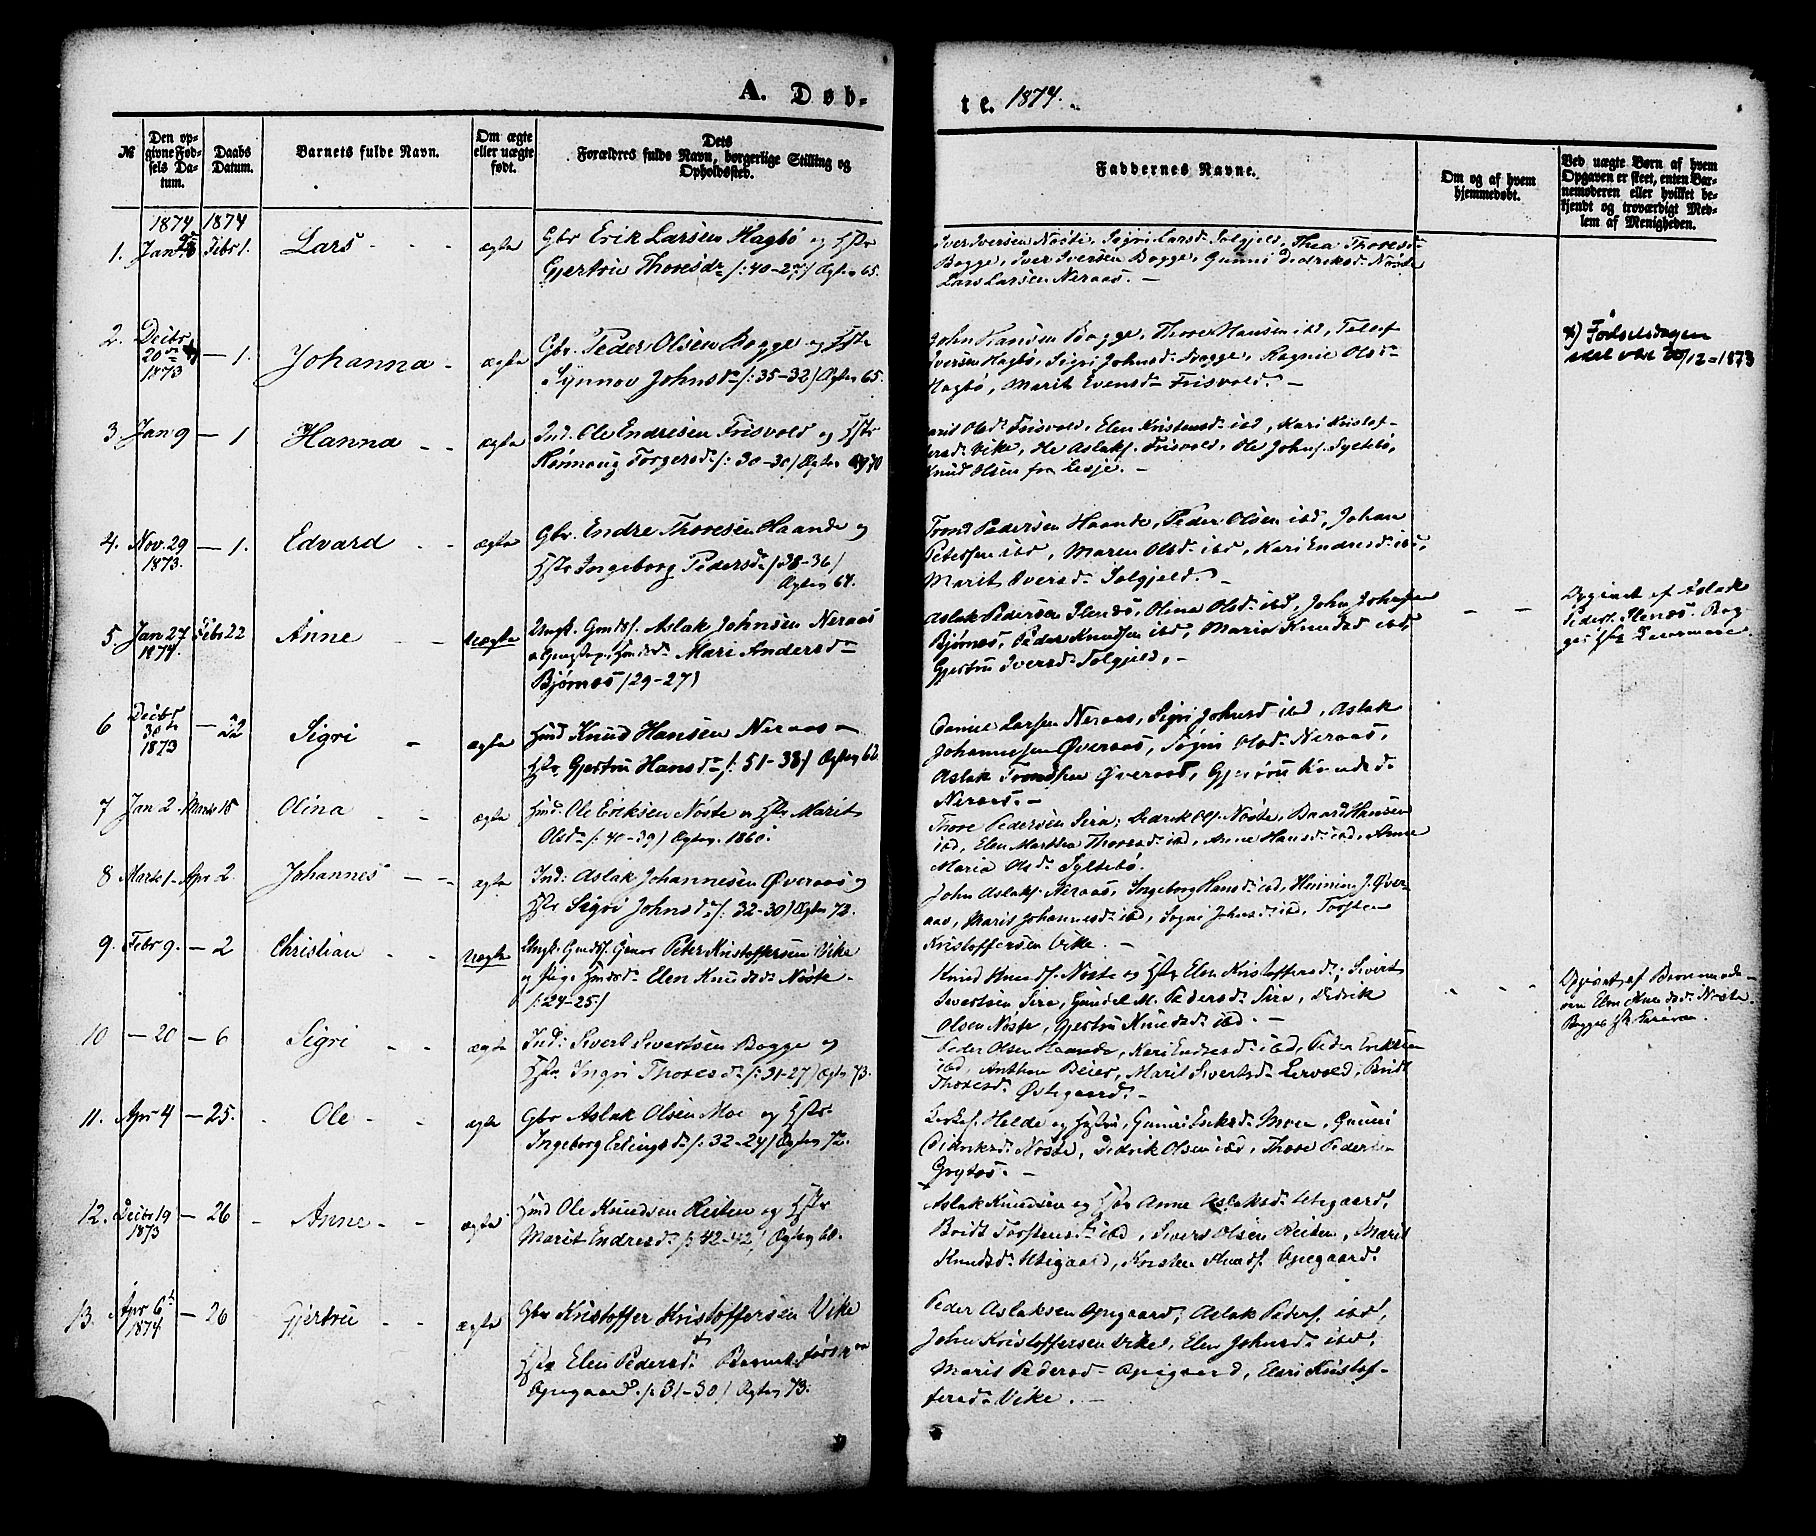 A. Døb-
te. 1874.
№
Den op-
givne Fød-
sels Da-
tum.
Daabs
Datum.
Barnets fulde Navn.
Om ægte
eller uægte
født.
Dets
Forældres fulde Navn, borgerlige Stilling og
Opholdssted.
Faddernes Navne.
Om og af hvem
hjemmedøbt.
Ved uægte Børn af hvem
Opgaven er skeet, enten Bar-
nemoderen eller hvilket be-
kjendt og troværdigt Med-
lem af Menigheden.
1874 1874
1. Jan Febr 1. Lars - - - ægte Gbr Erik Larsen Hagbø og Hstr
Gjertru Thoresdr /: 40-27/ Ægtev 65.
Iver Iversen Nøste, Sigri Larsd. Solgjeld, Thea Thoresd
Bogge, Iver Iversen Bogge, Gunni Didriksd. Nøste
Lars Larsen Neraas. -
2. Decbr
20 1873 - 1. Johanna - ægte Gbr. Peder Olsen Bogge og Hstr
Synnøv Johnsdr /: 35-32/ Ægtev 65.
John Hansen Bogge, Thore Hansen ibd,
Iversen Hagbø, Sigri Johnsd. Bogge, Ragnie Olsdr
Hagbø, Marit Evensdr Frisvold. -
*) Fødselsdagen
skal være 20/12-1873
3 Jan 9 - 1 Hanna - - ægte Ind. Ole Endresen Frisvold og Hstr
Rønnaug Torgersdr /: 30-30/ Ægtev 70
Marit Olsd. Frisvold, Elen Kristensd. ibd, Kari Kristof-
fersd. Vike, Ole Aslaks. Frisvold, Ole Johns. Syltebø,
Knud Olsen fra Lesje. -
4. Nov. 29
1873. - 1. Edvard - - ægte Gbr. Endre Thoresen Haande og
Hstr Ingeborg Pedersdr /38-36/
Ægtev 64.
Trond Pedersen Haande, Peder Olsen ibd, Johan
Petersen ibd, Maren Olsd. ibd, Kari Endresd. ibd,
Marit Iversd. Solgjeld. -
5. Jan 27
1874. Febr 22 Anne - - uægte Ungk. Gmds. Aslak Johnsen Neraas
Mari Andersdr
Bjørnos /29-27/
Aslak Pedersen Ilenæs, Olina Olsd. ibd, John Johnsen
Bjørnos, Peder Knudsen ibd, Marie Knudsd ibd,
Gjertru Iversd. Solgjeld. -
- - Opgivet af Aslak
Peders. Ilenæs. Bog-
6 Decbr
30te
1873 - 22 Sigri - ægte Hmd Knud Hansen Neraas -
Hstr Gjertru Hansdr /: 51-38/ Ægtev
Daniel Larsen Neraas, Sigri Johnsd ibd, Aslak
Johannesen Øveraas, Sigri Olsd. Neraas,
Aslak Trondsen Øveraas, Gjertru Knudsd.
Neraas. -
7 Jan 2. Marts 15 Olina - - ægte Hmd. Ole Eriksen Nøste og Hstr Marit
Olsdr /: 40-39/ Ægtev 1860.
Thore Pedersen Sira, Didrik Ols. Nøste, Baard Hansen
ibd, Elen Marthea Thoresd. ibd, Anne Hansd. ibd, Anne
Maria Olsd. Syltebø.
8 Marts 1. Apr 2. Johannes - - ægte Ind: Aslak Johannesen Øveraas og
Hstr Sigri Johnsdr /: 32-30/ Ægtev 73.
John Aslaks. Neraas, Ingeborg Hansd. ibd, Henning J. Øver-
aas, Marit Johannesd. ibd, Sigri Johnsd. ibd, Torsten
Kristoffersen Vike. -
9. Febr 9. - 2 Christian - - uægte Ungk. Gmds. Peter Kristoffersen Vike
og Pige Elen Knudsd. Nøste.
/: 24-25/
Knud Knuds. Nøste og Hstr Elen Kristoffersd., Sivert
Sivertsen Sira, Gundel M. Pedersd. Sira, Didrik
Olsen Nøste, Gjertru Knudsd. ibd. -
- - Opgivet af Barnemode-
ren Elen Knudsd. Nøste.
10 - 20 - 6 Sigri - - ægte Ind: Sivert Sivertsen Bogge og
Hstr Ingri Thoresdr /: 31-27/ Ægtev 73.
Peder Olsen Haande, Kari Endresd. ibd, Peder Eriksen
ibd, Anthon Beier, Marit Sivertsdr Lervold, Brit
Thoresd. Østigaard. -
11. Apr 4 - 25. - Ole - - ægte Gbr Aslak Olsen Moe og Hstr.
Ingeborg Erlingsdr /: 32-24/ Ægtev 72.
Helde og Hustru, Gunni Eriksd. Moen, Gunni
Didriksd. Nøste, Didrik Olsen ibd, Thore Pedersen
Grytøs. -
12. Decbr 19
1873 - 26 - Anne - - ægte Hmd Ole Knudsen Reiten og Hstr
Marit Endresdr /: 42-42/ Ægtev 60.
Aslak Knudsen og Hstr Anne Aslaksd. Utigaard,
Brit Torstensd. ibd, Sivert Olsen Reiten, Marit
Knudsd. Utigaard, Kristen Knuds. Opegaard.
13. Apr 6te
1874 - 26 - Gjertru - - ægte Gbr Kristoffer Kristoffersen Vike
Hstr Elen Pedersd.
Opegaard. /: 31-30/ Ægtev 73.
Peder Aslaksen Opegaard, Aslak Peders. ibd,
John Kristoffersen Vike, Elen Johnsd. ibd,
Marit Pedersd. Opegaard, Elen Kristof-
fersd. Vike. -